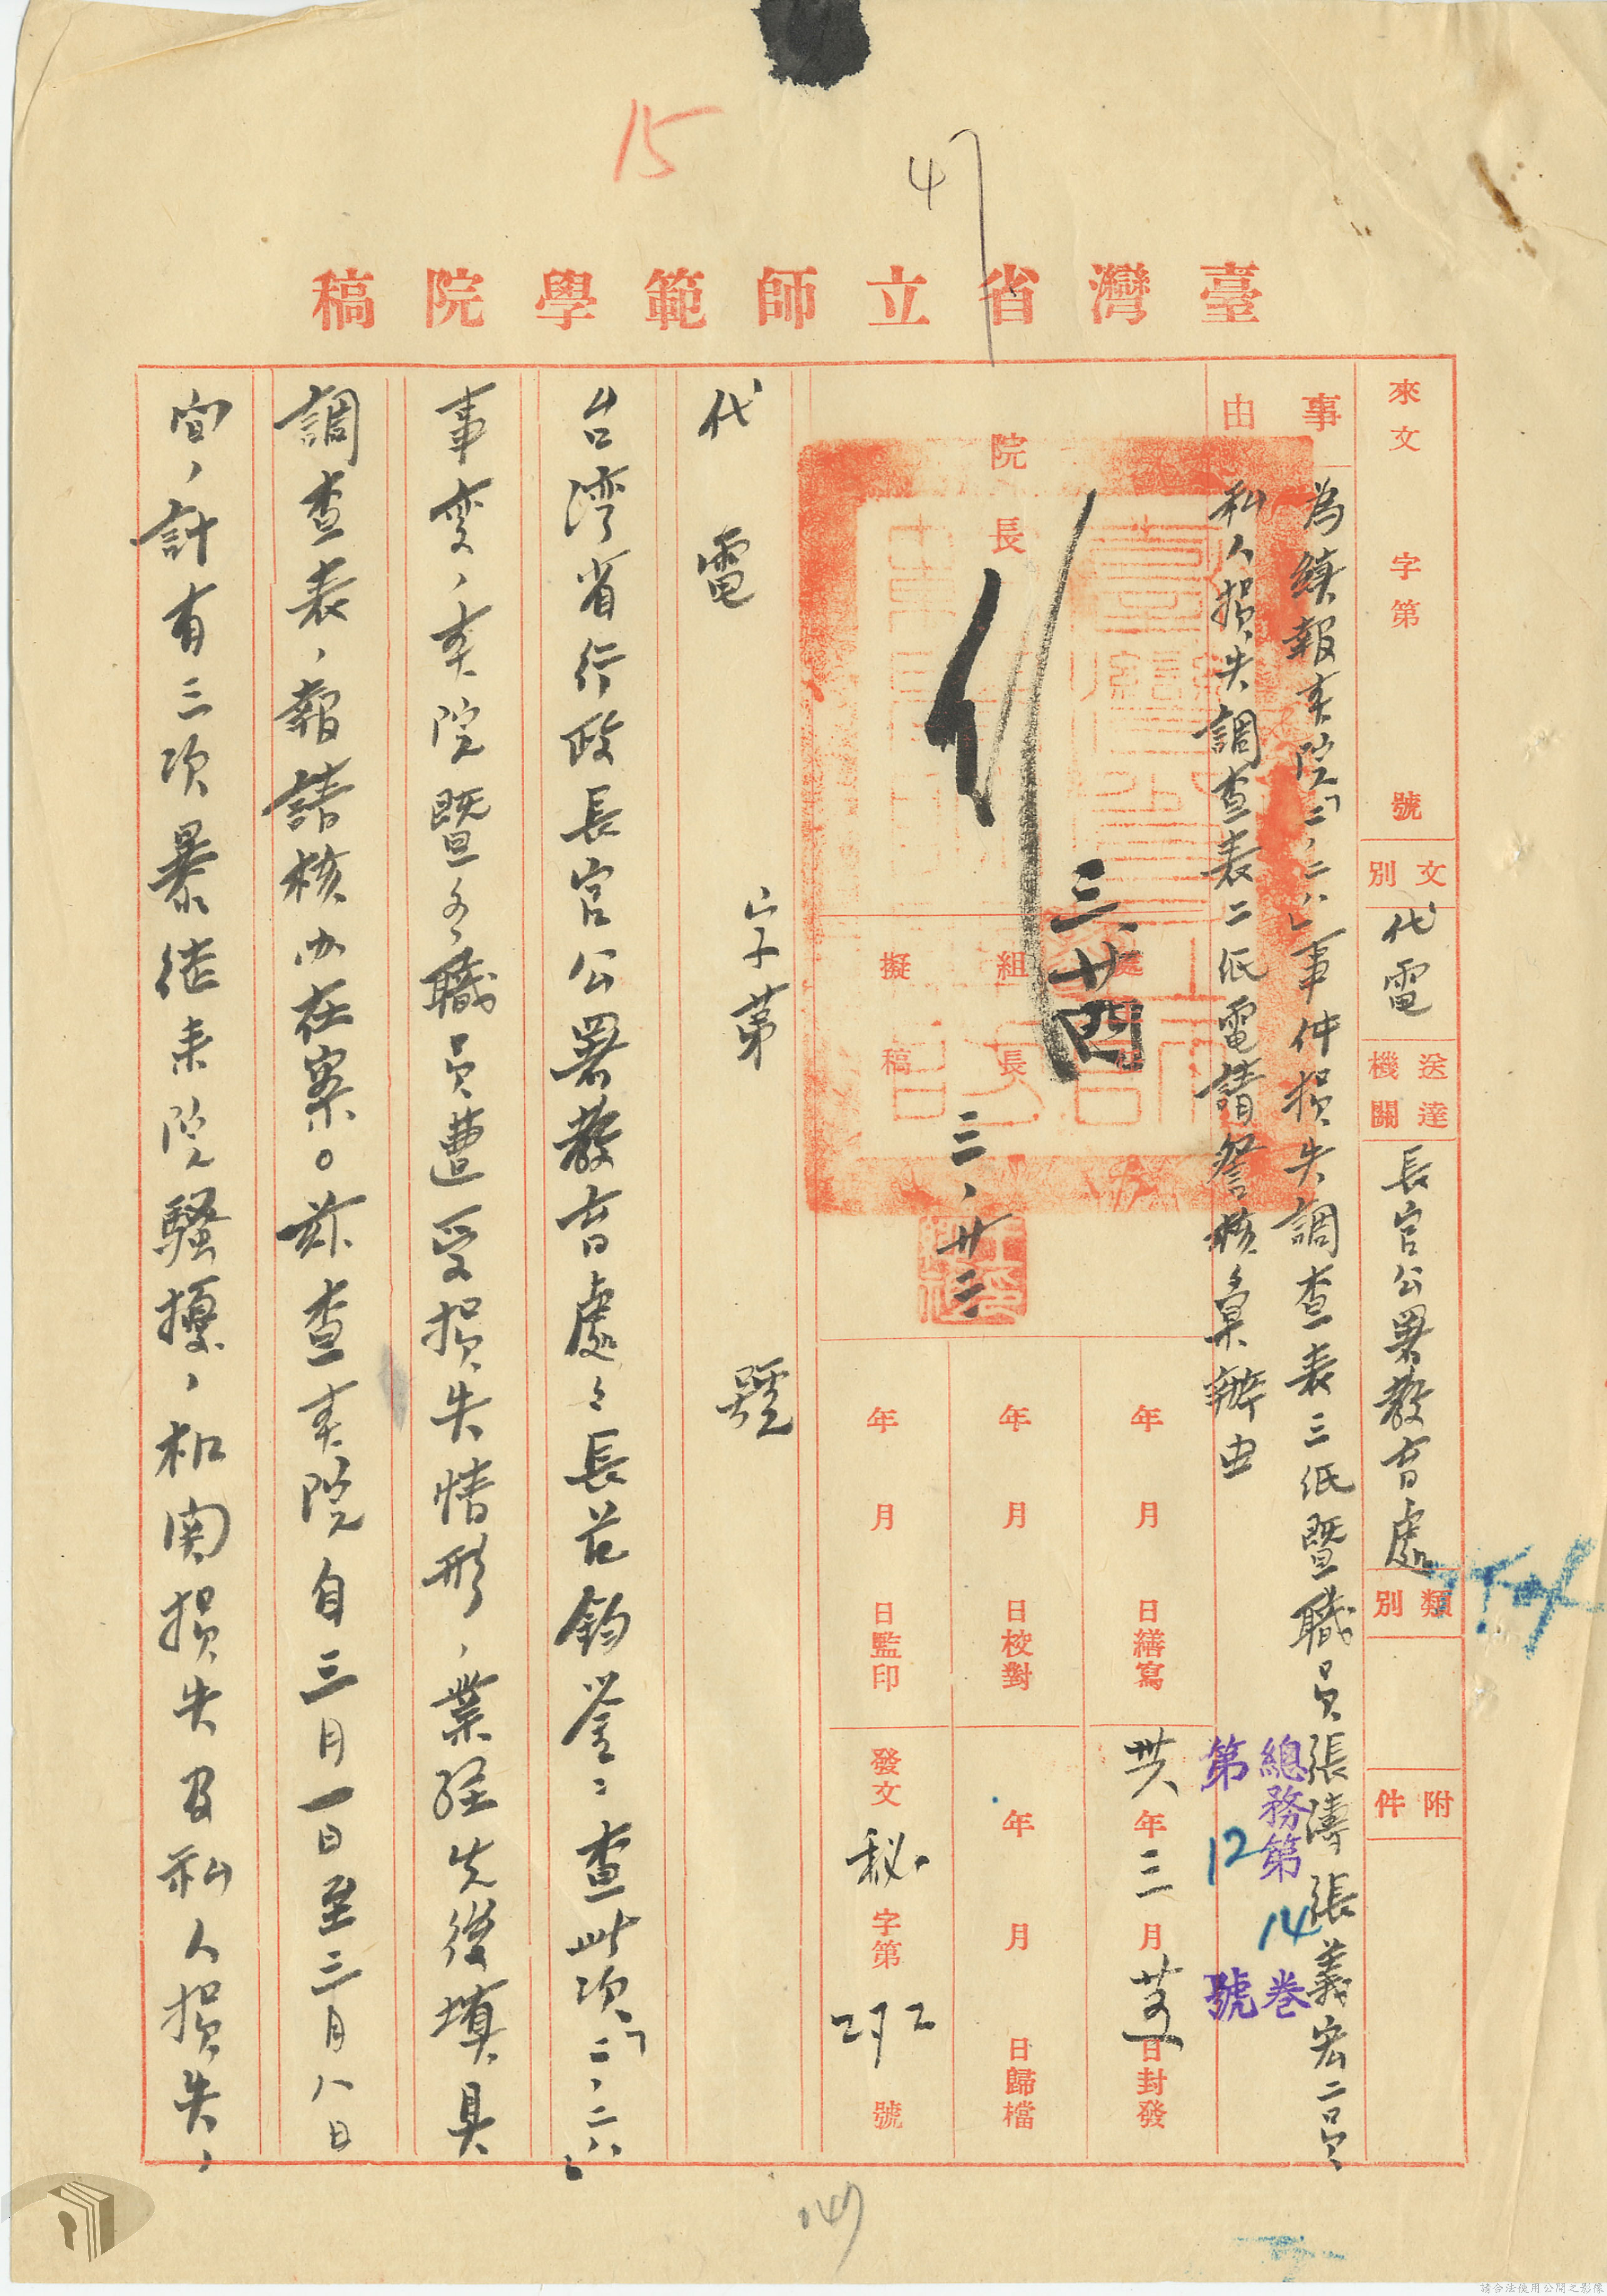 15
47
臺灣省立師範學院稿
來文 字第 號
文別 代電
送達機關 長官公署教育處
類別
附件
事由 為續報本院「二、二八」事件損失調查表三紙暨職員張濤張義宏二員
私人損失調查表二紙電請詧核彙辦由
總務第 14 卷
第 12 號
院長
三 廿四
處
組長
擬稿
三、廿三
年 月 日繕寫
年 月 日校對
年 月 日監印
卅六年三月 日封發
年 月 日歸檔
發文 秘字第 號
代電 字第 號
台湾省行政長官公署教育處々長范鈞鉴：查此次「二、二八」
事变，本院暨各職員遭受損失情形，業經先後填具
調查表，報請核办在案。茲查本院自三月一日至三月八日
間，計有三次暴徒来院騷擾，机関損失及私人損失，
請合法使用公開之影像